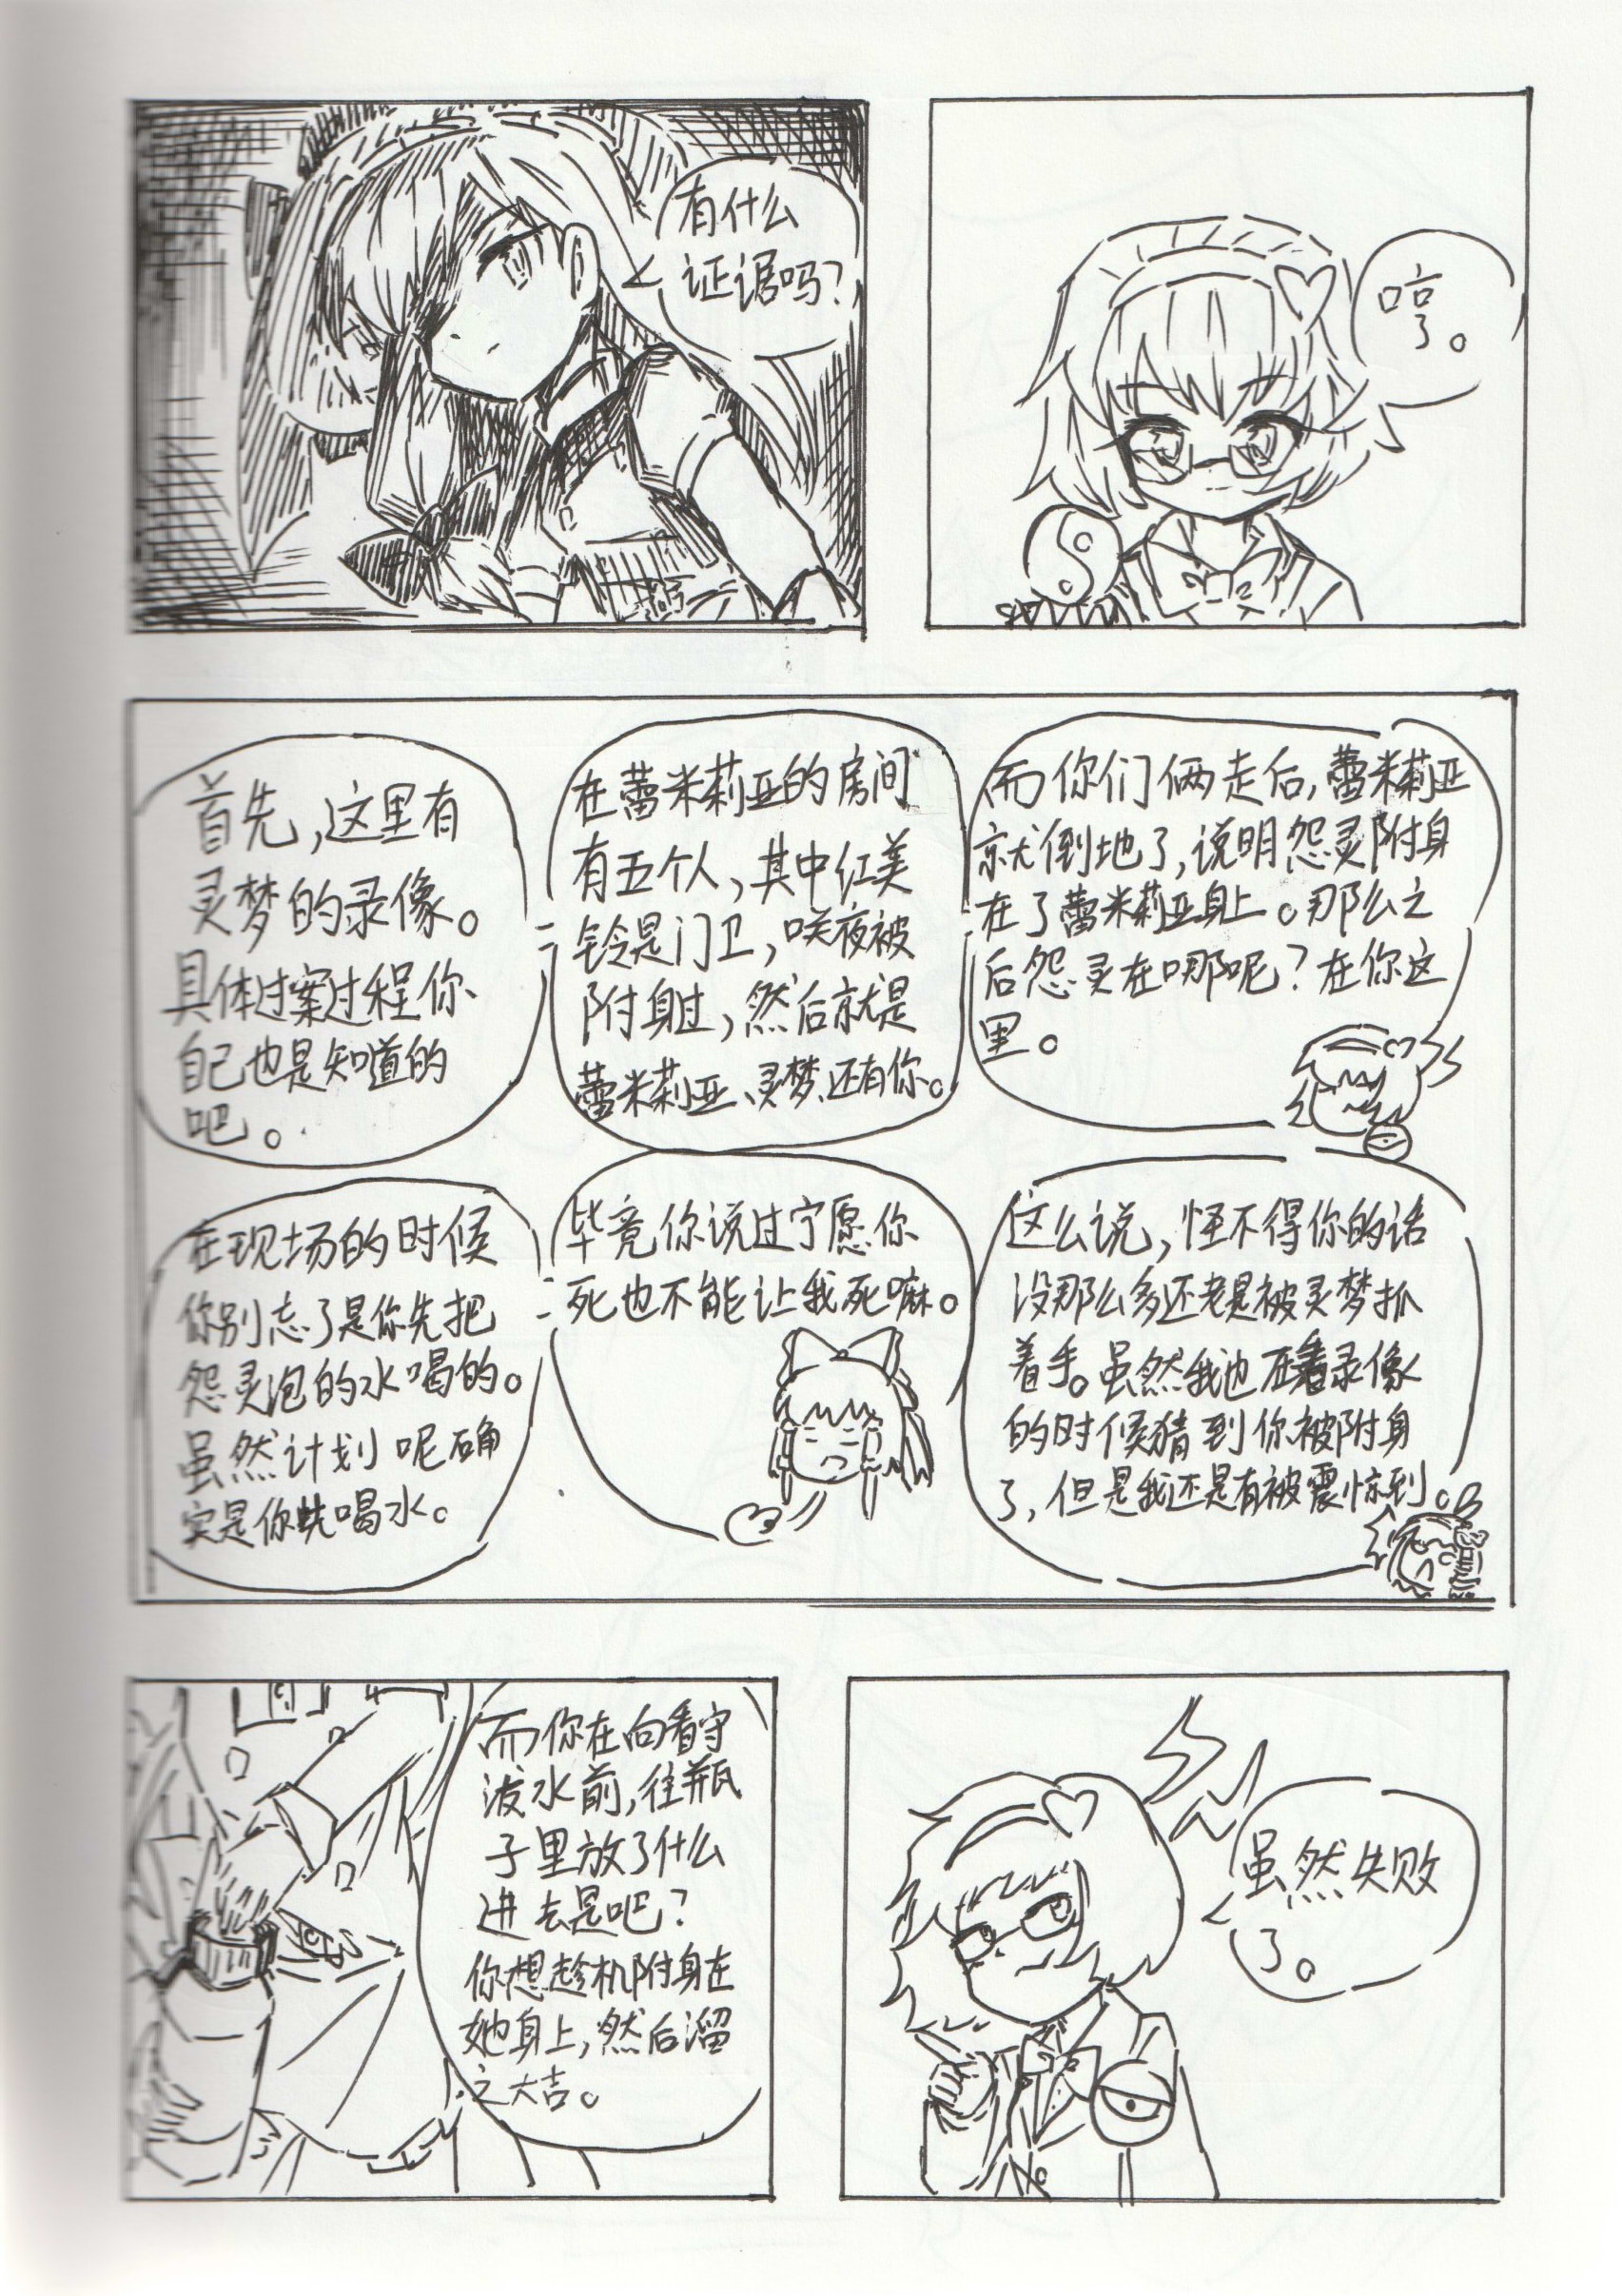 有什么
证据吗？
哼。
首先，这里有
灵梦的录像。
具体过案过程你
自己也是知道的
吧。
在蕾米莉亚的房间
有五个人，其中红美
铃是门卫，咲夜被
附身过，然后就是
蕾米莉亚、灵梦、还有你。
而你们俩走后，蕾米莉亚
就倒地了，说明怨灵附身
在了蕾米莉亚身上。那么之
后怨灵在哪呢？在你这
里。
在现场的时候
你别忘了是你先把
怨灵泡的水喝的。
虽然计划呢确
实是你先喝水。
毕竟你说过宁愿你
死也不能让我死嘛。
这么说，怪不得你的话
没那么多还老是被灵梦抓
着手。虽然我也在看录像
的时候猜到你被附身
了，但是我还是有被震惊到。
而你在向看守
泼水前，往瓶
子里放了什么
进去是吧？
你想趁机附身在
她身上，然后溜
之大吉。
虽然失败
了。